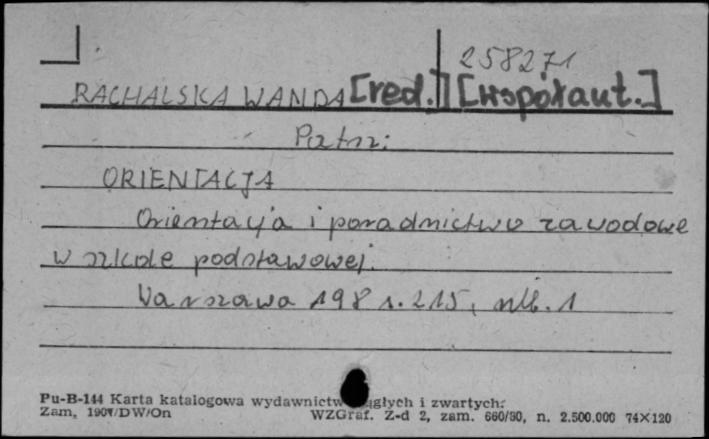 258271
RACHALSKA WANDA [red.] [współaut.]
Patrz:
ORIENTACJA
Orientacja i poradnictwo zawodowe
w szkole podstawowej.
Warszawa 198 s. 215, nlb. 1
Pu-B-144 Karta katalogowa wydawnictw ciągłych i zwartych:
Zam, /DW/On WZGraf. Z-d 2, zam. 660/80, n. 2.500.000 74×120